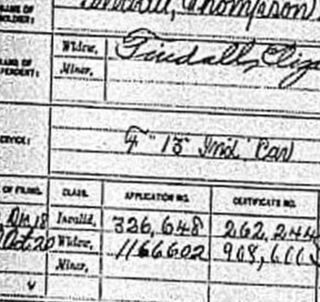 NAME OF
SOLDIER:
Thompson
NAME OF
DEPENDENT:
Widow, Tindall, Eliza
Minor,
SERVICE:
F "13" Ind Cav
OF FILING. CLASS. APPLICATION NO. CERTIFICATE NO.
Invalid, 326,648 262,244
Oct 20 Widow, 1166602
Minor,